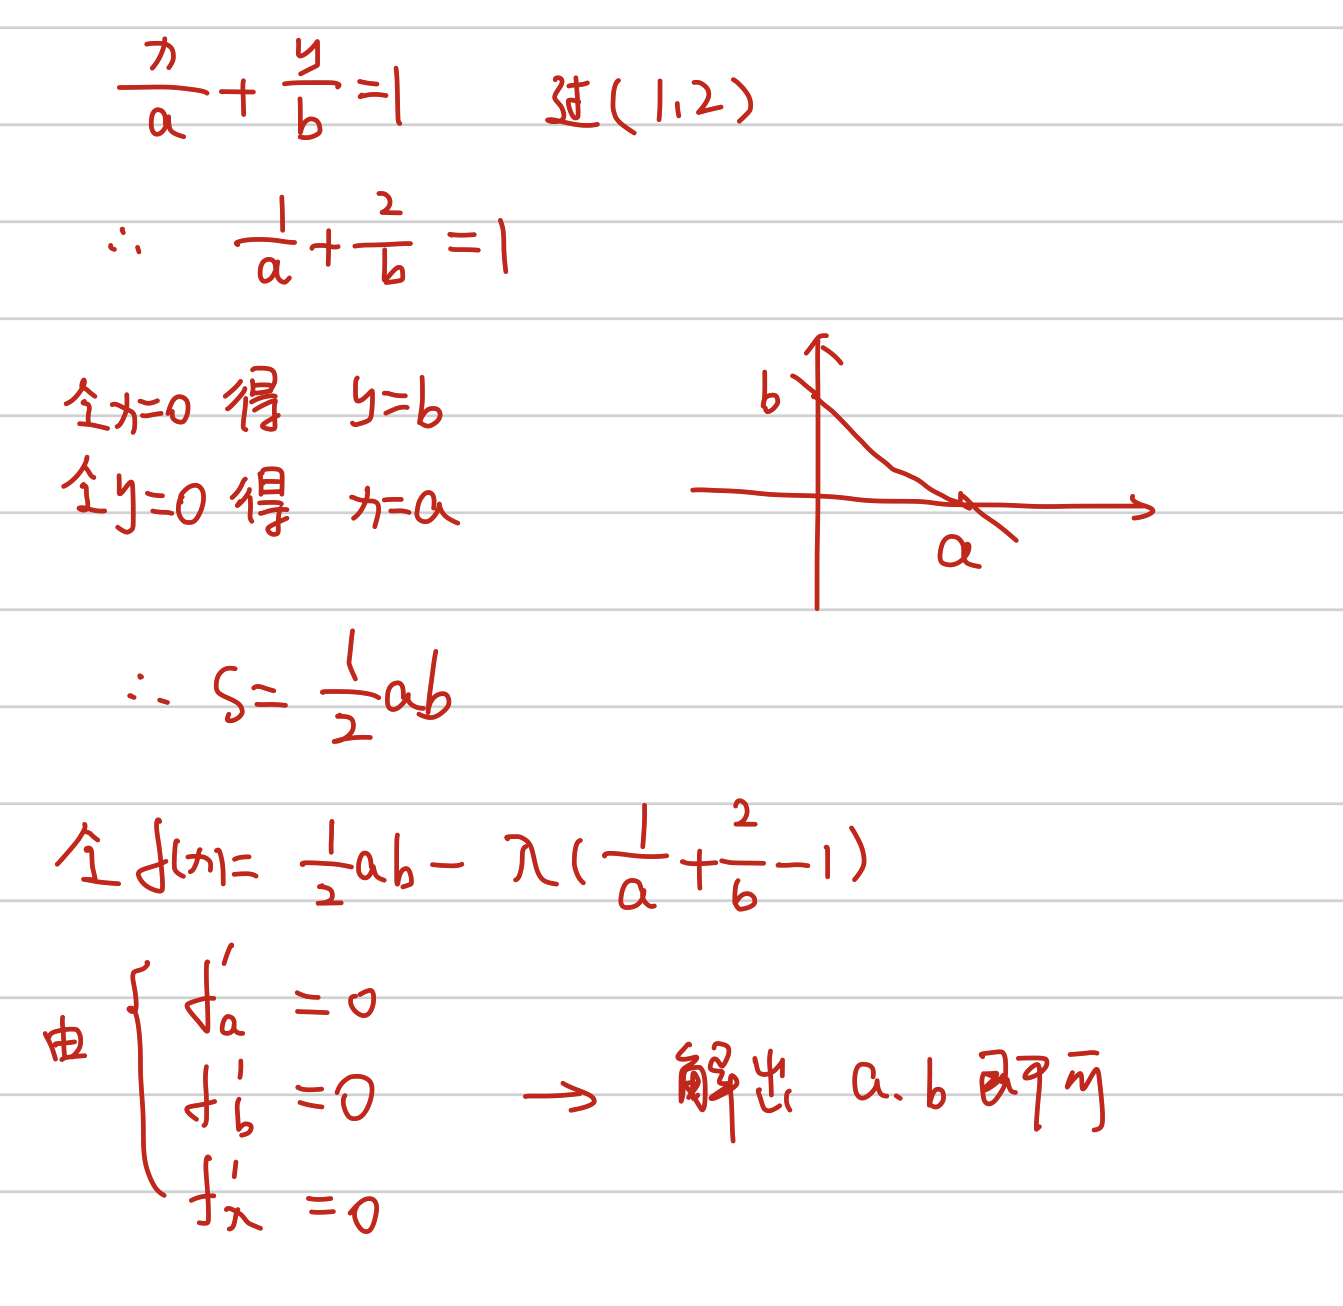 x/a + y/b = 1 过(1,2)
∴ 1/a + 2/b = 1
令x=0 得 y=b
令y=0 得 x=a
b
a
∴ S = 1/2 ab
令 f(x)= 1/2 ab - λ(1/a + 2/b - 1)
由 { f'a = 0
f'b = 0 → 解出 a.b 即可
f'λ = 0